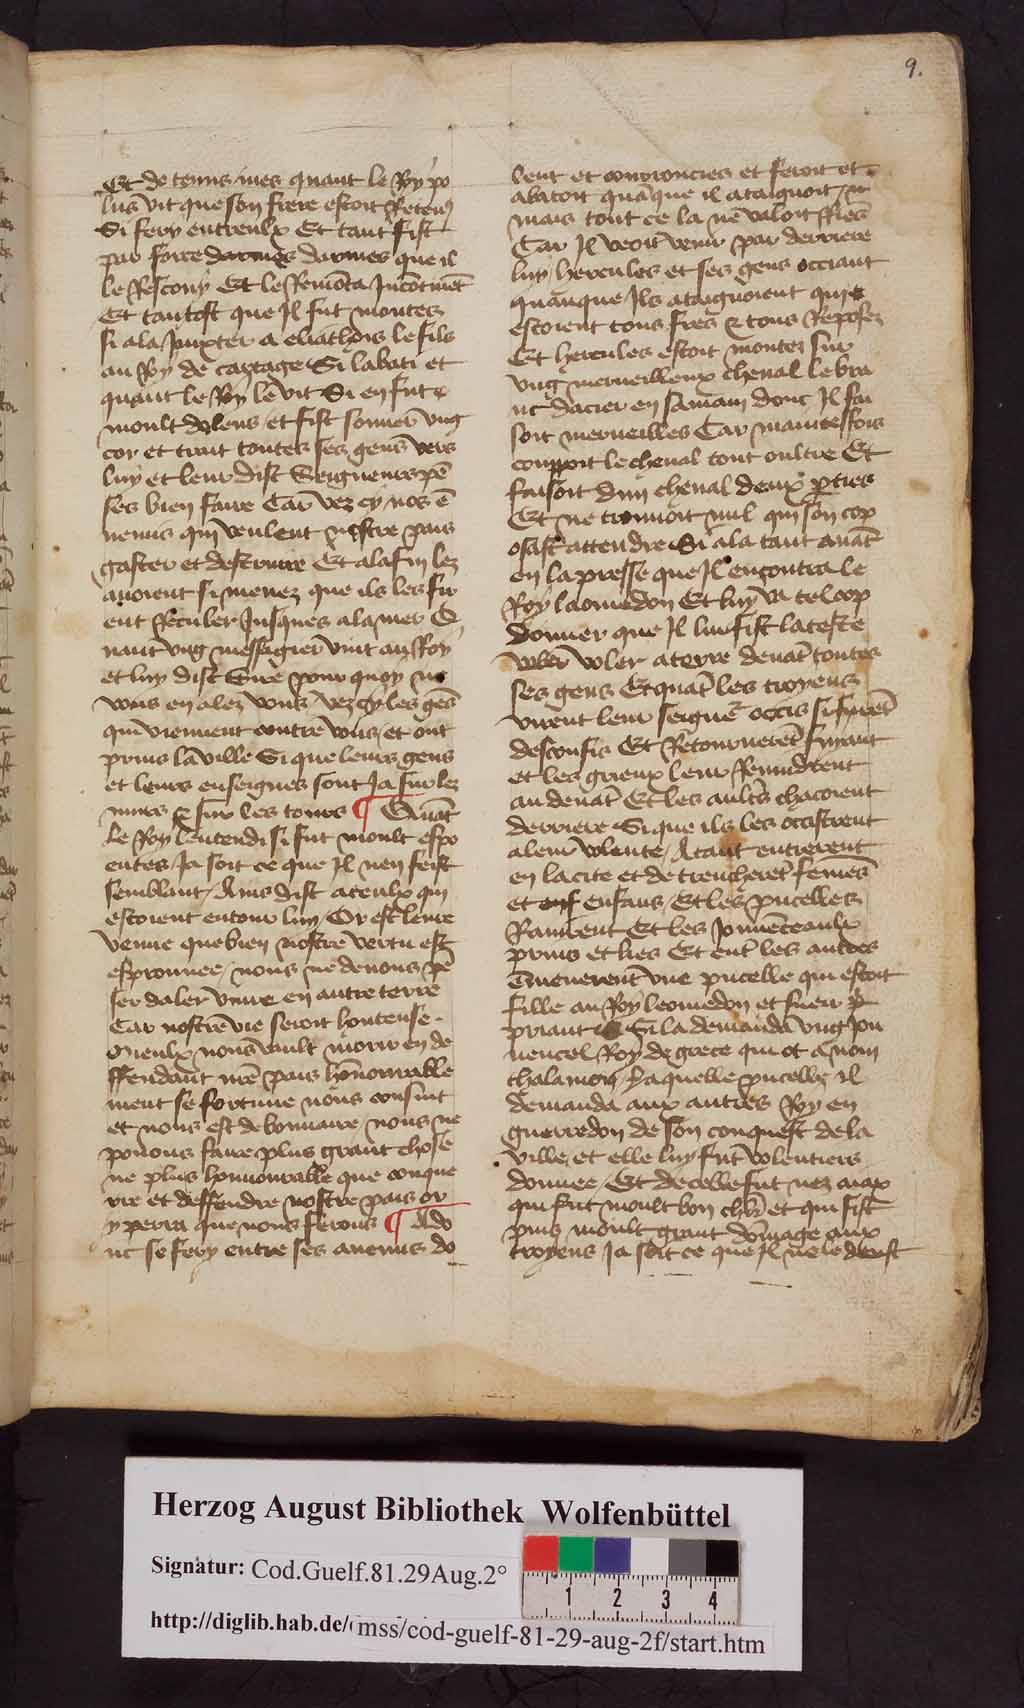 9.
Et de tenus mes quant le Roy po
lus vit que son frere estoit Retenu
Si fery entreulx Et tant fist
par force darmes darmes que il
le Rescouy Et le Remōta Incōtinēt
Et tantost que Il fut montes
si ala Juxter a eliathōis le fils
au Roy de cartage Si labati et
quant le Roy le vit Si en fut
moult dolens et fist sonner ung
cor et trait toutes ses gens vers
luy et leur dist Seigneurs pē
ses bien faire Car vez cy nos ē
nemis qui veulent nostre pais
gaster et destruire Et alafin lez
auoient si menez que ils les fir
ent Reculer Jusques ala mer
nant ung messagier vint au Roy
et luy dist Sire pour quoy ne
vous en alez vous vez cy les gēs
qui viennent contre vous et ont
prins la ville Si que leurs gens
et leurs enseignes sont Ja sur lez
murs & sur les tours ¶ Quāt
le Roy lentendi si fut moult espo
entes Ja soit ce que Il nen feist
semblant / Ains dist a ceulx qui
estoient entour luy / Or est leure
venue que bien nostre vertu est
esprouuee / nous ne deuons pē
ser daler viure en autre terre
Car nostre vie seroit honteuse .
Mieulx nous vault morir en de
ffendant nr̄e pais hōnourable
ment se fortune nous consint
et nous est debonnaire / nous ne
pouons faire plus grant chose
ne plus honnourable que conque
rre et deffendre nostre pais or
y perra que nous ferons ¶ Ado
nc se fery entre ses anemis do
lent et couronciés et feroit et
abatoit quāque il ataignoit
mais tout ce la ne valoit Riēs
Car Il veoit venir par derriere
luy hercules et ses gens occiant
quanque Ils ataignoient qui
estoient tous fres & tous Reposez
Et hercules estoit montez sur
ung merueilleux cheual le bra
nc dacier en sa main donc Il fai
soit merueilles Car maintes fois
coupoit le cheual tout oultre Et
faisoit dun cheual deux parties
Et ne trouuoit nul qui son cop
osast attendre Si ala tant auāt
en la presse que Il encontra le
Roy laomedon Et luy va tel cop
donner que Il luy fist la teste
voler a terre deuāt toutes
ses gens Et quāt les troyens
virent leur seignēr occis si furēt
desconfis Et Retournerēt fuyant
et les grieux leur
au deuāt Et les aultrēs chacoient
derriere Si que ils les occistrent
a leur volente / Atant entrerent
en la cite et detrencherēt femēs
et enfans / Et les pucelles
Rauirent Et les Jouuēceaulx
prins et lies Et entre les autres
ēmenerent vne pucelle qui estoit
fille au Roy leomedon et sueur
priant Si la demanda ung Jou
uencel Roy de grece qui ot a nom
thalamon / laquelle pucelle il
demanda aux autres Roy en
guerredon de son conquest de la
ville et elle luy fut volentiers
donnee / Et de celle fut nez aiax
qui fut moult bon chlr̄ et qui fist
puis moult grant dōmage aux
troyens Ja soit ce que Il ne le deust
Herzog August Bibliothek Wolfenbüttel
Signatur: Cod.Guelf.81.29Aug.2°
1 2 3 4
http://diglib.hab.de/mss/cod-guelf-81-29-aug-2f/start.htm